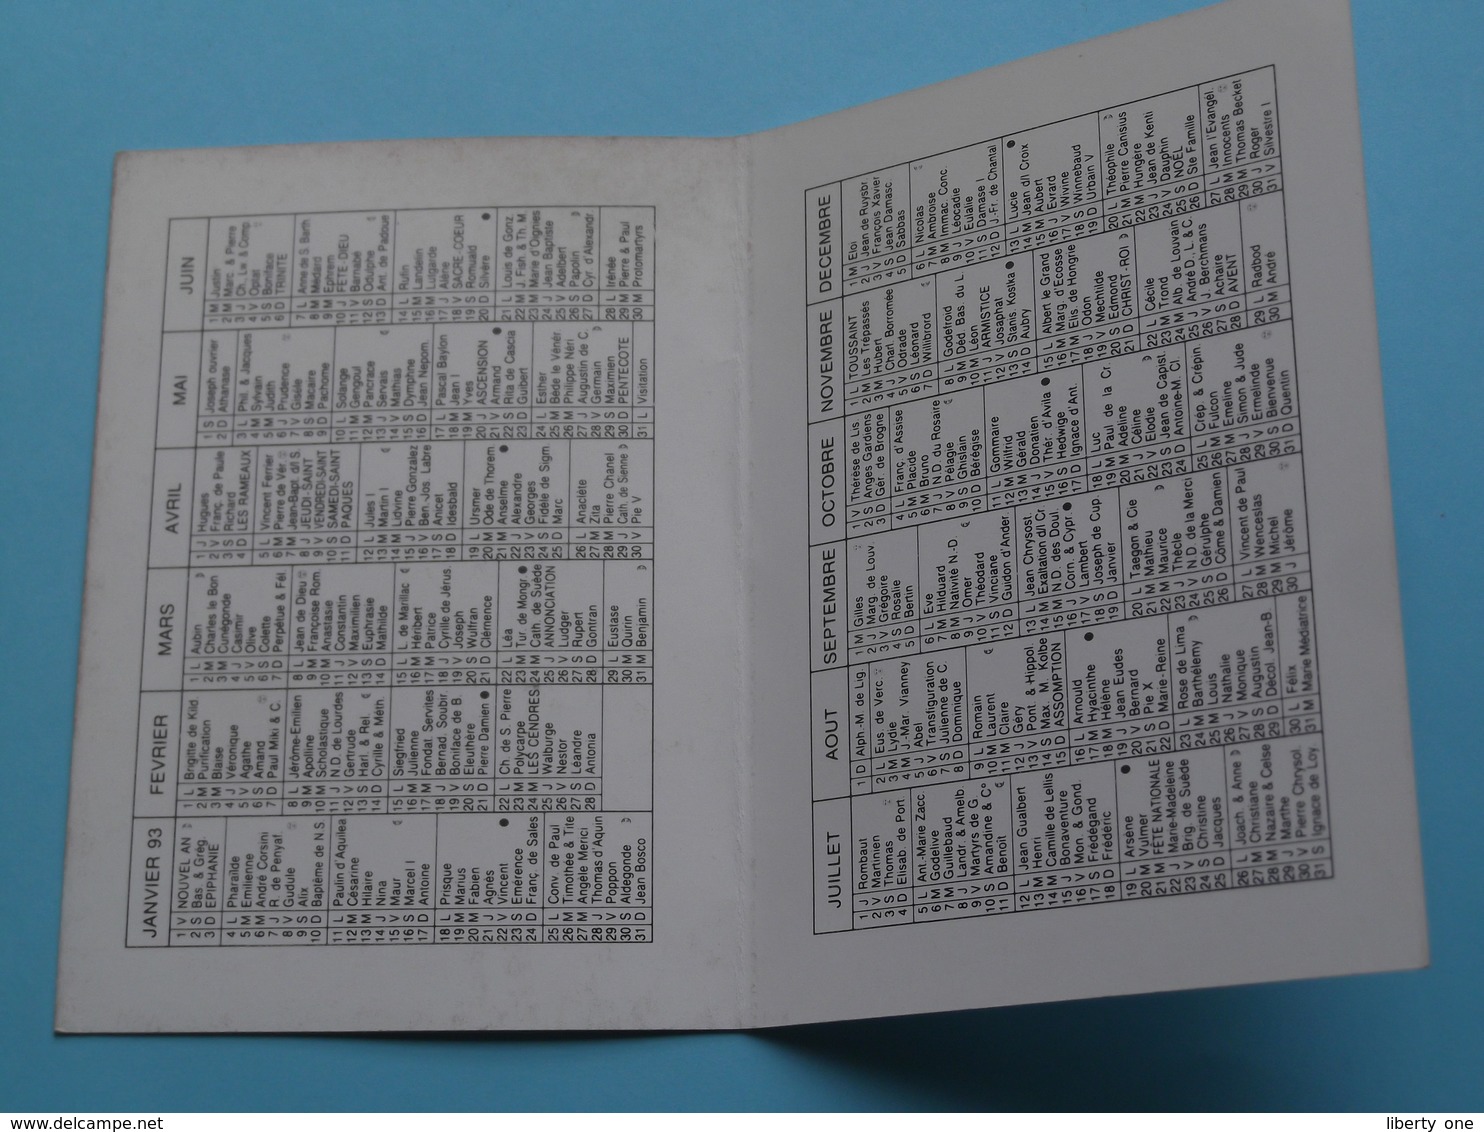 JANVIER 93
1 V NOUVEL AN
2 S Bas. & Grég.
3 D EPIPHANIE
4 L Pharaïlde
5 M Emilienne
6 M André Corsini
7 J R. de Penyaf.
8 V Gudule
9 S Alix
10 D Baptême de N.S
11 L Paulin d'Aquilea
12 M Césarine
13 M Hilaire
14 J Nina
15 V Maur
16 S Marcel I
17 D Antoine
18 L Prisque
19 M Marius
20 M Fabien
21 J Agnès
22 V Vincent
23 S Emérence
24 D Franç. de Sales
25 L Conv. de Paul
26 M Timothée & Tite
27 M Angèle Merici
28 J Thomas d'Aquin
29 V Poppon
30 S Aldegonde
31 D Jean Bosco
FEVRIER
1 L Brigitte de Kild
2 M Purification
3 M Blaise
4 J Véronique
5 V Agathe
6 S Amand
7 D Paul Miki & C.
8 L Jérôme-Emilien
9 M Apolline
10 M Scholastique
11 J N.D. de Lourdes
12 V Gertrude
13 S Harl. & Rel.
14 D Cyrille & Méth.
15 L Siegfried
16 M Julienne
17 M Fondat. Servites
18 J Bernad. Soubir.
19 V Boniface de B.
20 S Eleuthère
21 D Pierre Damien
22 L Ch. de S. Pierre
23 M Polycarpe
24 M LES CENDRES
25 J Walburge
26 V Nestor
27 S Léandre
28 D Antonia
MARS
1 L Aubin
2 M Charles le Bon
3 M Cunégonde
4 J Casimir
5 V Olive
6 S Colette
7 D Perpétue & Fél.
8 L Jean de Dieu
9 M Françoise Rom.
10 M Anastasie
11 J Constantin
12 V Maximilien
13 S Euphrasie
14 D Mathilde
15 L L. de Marillac
16 M Héribert
17 M Patrice
18 J Cyrille de Jérus.
19 V Joseph
20 S Wulfran
21 D Clémence
22 L Léa
23 M Tur. de Mongr
24 M Cath. de Suède
25 J ANNONCIATION
26 V Ludger
27 S Rupert
28 D Gontran
29 L Eustase
30 M Quirin
31 M Benjamin
AVRIL
1 J Hugues
2 V Franç. de Paule
3 S Richard
4 D LES RAMEAUX
5 L Vincent Ferrier
6 M Pierre de Vér.
7 M Jean-Bapt. d/l S.
8 J JEUDI-SAINT
9 V VENDREDI-SAINT
10 S SAMEDI-SAINT
11 D PAQUES
12 L Jules I
13 M Martin I
14 M Lidvine
15 J Pierre Gonzalez
16 V Ben. Jos. Labre
17 S Anicet
18 D Idesbald
19 L Ursmer
20 M Ode de Thorem
21 M Anselme
22 J Alexandre
23 V Georges
24 S Fidèle de Sigm.
25 D Marc
26 L Anaclète
27 M Zita
28 M Pierre Chanel
29 J Cath. de Sienne
30 V Pie V
MAI
1 S Joseph ouvrier
2 D Athanase
3 L Phil. & Jacques
4 M Sylvain
5 M Judith
6 J Prudence
7 V Gisèle
8 S Macaire
9 D Pachome
10 L Solange
11 M Gengoul
12 M Pancrace
13 J Servais
14 V Mathias
15 S Dymphne
16 D Jean Nepom.
17 L Pascal Baylon
18 M Jean I
19 M Yves
20 J ASCENSION
21 V Armand
22 S Rita de Cascia
23 D Guibert
24 L Esther
25 M Bède le Vénér.
26 M Philippe Néri
27 J Augustin de C.
28 V Germain
29 S Maximien
30 D PENTECOTE
31 L Visitation
JUIN
1 M Justin
2 M Marc. & Pierre
3 J Ch. Lw. & Comp.
4 V Optat
5 S Boniface
6 D TRINITE
7 L Anne de S. Barth
8 M Médard
9 M Ephrem
10 J FETE-DIEU
11 V Barnabé
12 S Odulphe
13 D Ant. de Padoue
14 L Rufin
15 M Landelin
16 M Lutgarde
17 J Alène
18 V SACRE-COEUR
19 S Romuald
20 D Silvère
21 L Louis de Gonz.
22 M J. Fish. & Th. M.
23 M Marie d'Oignies
24 J Jean Baptiste
25 V Adelbert
26 S Papolin
27 D Cyr. d'Alexandr.
28 L Irénée
29 M Pierre & Paul
30 M Protomartyrs
JUILLET
1 J Rombaut
2 V Martinien
3 S Thomas
4 D Elisab. de Port.
5 L Ant.-Marie Zacc
6 M Godelive
7 M Guillebaud
8 J Landr. & Amelb.
9 V Martyrs de G.
10 S Amandine & C°
11 D Benoît
12 L Jean Gualbert
13 M Henri
14 M Camille de Lellis
15 J Bonaventure
16 V Mon. & Gond.
17 S Frédégand
18 D Frédéric
19 L Arsène
20 M Vulmer
21 M FETE NATIONALE
22 J Marie-Madeleine
23 V Brig. de Suède
24 S Christine
25 D Jacques
26 L Joach. & Anne
27 M Christiane
28 M Nazaire & Celse
29 J Marthe
30 V Pierre Chrysol.
31 S Ignace de Loy.
AOUT
1 D Alph.-M. de Lig.
2 L Eus. de Verc.
3 M Lydie
4 M J.-Mar. Vianney
5 J Abel
6 V Transfiguration
7 S Julienne de C.
8 D Dominique
9 L Romain
10 M Laurent
11 M Claire
12 J Géry
13 V Pont. & Hippol.
14 S Max. M. Kolbe
15 D ASSOMPTION
16 L Arnould
17 M Hyacinthe
18 M Hélène
19 J Jean Eudes
20 V Bernard
21 S Pie X
22 D Marie-Reine
23 L Rose de Lima
24 M Barthélemy
25 M Louis
26 J Nathalie
27 V Monique
28 S Augustin
29 D Décol. Jean-B
30 L Félix
31 M Marie Médiatrice
SEPTEMBRE
1 M Gilles
2 J Marg. de Louv.
3 V Grégoire
4 S Rosalie
5 D Bertin
6 L Eve
7 M Hilduard
8 M Nativité N.-D.
9 J Omer
10 V Théodard
11 S Vinciane
12 D Guidon d'Ander
13 L Jean Chrysost.
14 M Exaltation d/l Cr
15 M N.D. des Doul.
16 J Corn. & Cypr.
17 V Lambert
18 S Joseph de Cup.
19 D Janvier
20 L Taegon & Cie
21 M Mathieu
22 M Maurice
23 J Thècle
24 V N.D. de la Merci
25 S Gérulphe
26 D Côme & Damien
27 L Vincent de Paul
28 M Wenceslas
29 M Michel
30 J Jérôme
OCTOBRE
1 V Thérèse de Lis.
2 S Anges Gardiens
3 D Gér. de Brogne
4 L Franç. d'Assise
5 M Placide
6 M Bruno
7 J N.D. du Rosaire
8 V Pélagie
9 S Ghislain
10 D Bérégise
11 L Gommaire
12 M Wilfrid
13 M Gérald
14 J Donatien
15 V Thér. d'Avila
16 S Hedwige
17 D Ignace d'Ant.
18 L Luc
19 M Paul de la Cr.
20 M Adeline
21 J Céline
22 V Elodie
23 S Jean de Capist
24 D Antoine-M. Cl.
25 L Crép. & Crépin.
26 M Fulcon
27 M Emeline
28 J Simon & Jude
29 V Ermelinde
30 S Bienvenue
31 D Quentin
NOVEMBRE
1 L TOUSSAINT
2 M Les Trépassés
3 M Hubert
4 J Charl. Borromée
5 V Odrade
6 S Léonard
7 D Willibrord
8 L Godefroid
9 M Déd. Bas. du L.
10 M Léon
11 J ARMISTICE
12 V Josaphat
13 S Stanis. Kostka
14 D Aubry
15 L Albert le Grand
16 M Marg. d'Ecosse
17 M Elis. de Hongrie
18 J Odon
19 V Mechtilde
20 S Edmond
21 D CHRIST-ROI
22 L Cécile
23 M Trond
24 M Alb. de Louvain
25 J André D., L. & C.
26 V J. Berchmans
27 S Achaire
28 D AVENT
29 L Radbod
30 M André
DECEMBRE
1 M Eloi
2 J Jean de Ruysbr.
3 V François Xavier
4 S Jean Damasc.
5 D Sabbas
6 L Nicolas
7 M Ambroise
8 M Immac. Conc.
9 J Léocadie
10 V Eulalie
11 S Damase I
12 D J.-Fr. de Chantal
13 L Lucie
14 M Jean d/l Croix
15 M Aubert
16 J Evrard
17 V Wivine
18 S Winnebaud
19 D Urbain V
20 L Théophile
21 M Pierre Canisius
22 M Hungère
23 J Jean de Kenti
24 V Dauphin
25 S NOËL
26 D Ste Famille
27 L Jean l'Evangel.
28 M Innocents
29 M Thomas Becket
30 J Roger
31 V Silvestre I
liberty one